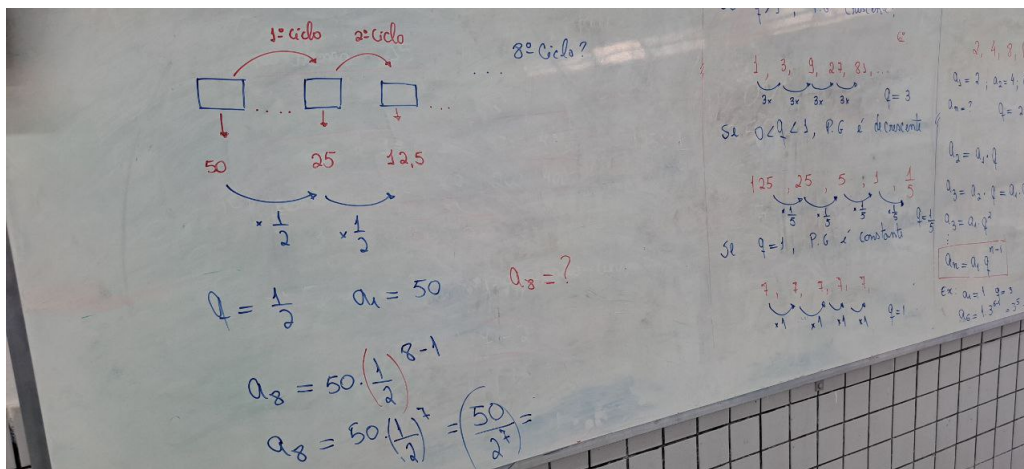 1º Ciclo 2º Ciclo
.... 8º Ciclo?
.... ....
50 25 12,5
× 1/2 × 1/2
q = 1/2 a₁ = 50 a₈ = ?
a₈ = 50 · (1/2)^(8-1)
a₈ = 50 · (1/2)^7 = (50/2^7) =
1, 3, 9, 27, 81, ...
3x 3x 3x 3x q = 3
Se 0 < q < 1, P.G é decrescente
125, 25, 5, 1, 1/5
× 1/5 × 1/5 × 1/5 × 1/5 q = 1/5
Se q = 1, P.G é constante
7, 7, 7, 7, 7,
×1 ×1 ×1 ×1 q = 1
2, 4, 8,
a₁ = 2, a₂ = 4,
aₙ = ? q = 2
a₂ = a₁ · q
a₃ = a₂ · q = a₁ ·
a₃ = a₁ q²
aₙ = a₁ q^(n-1)
Ex: a₁ = 1 q = 3
a₆ = 1 · 3^(6-1) = 3^5